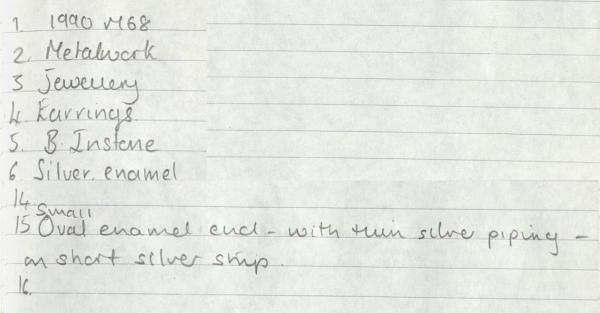 1. 1990 M68
2. Metalwork
3 Jewellery
4 Earrings
5. B. Instone
6 Silver. enamel
14.
small
15 Oval enamel end - with thin silver piping -
on short silver strip.
16.